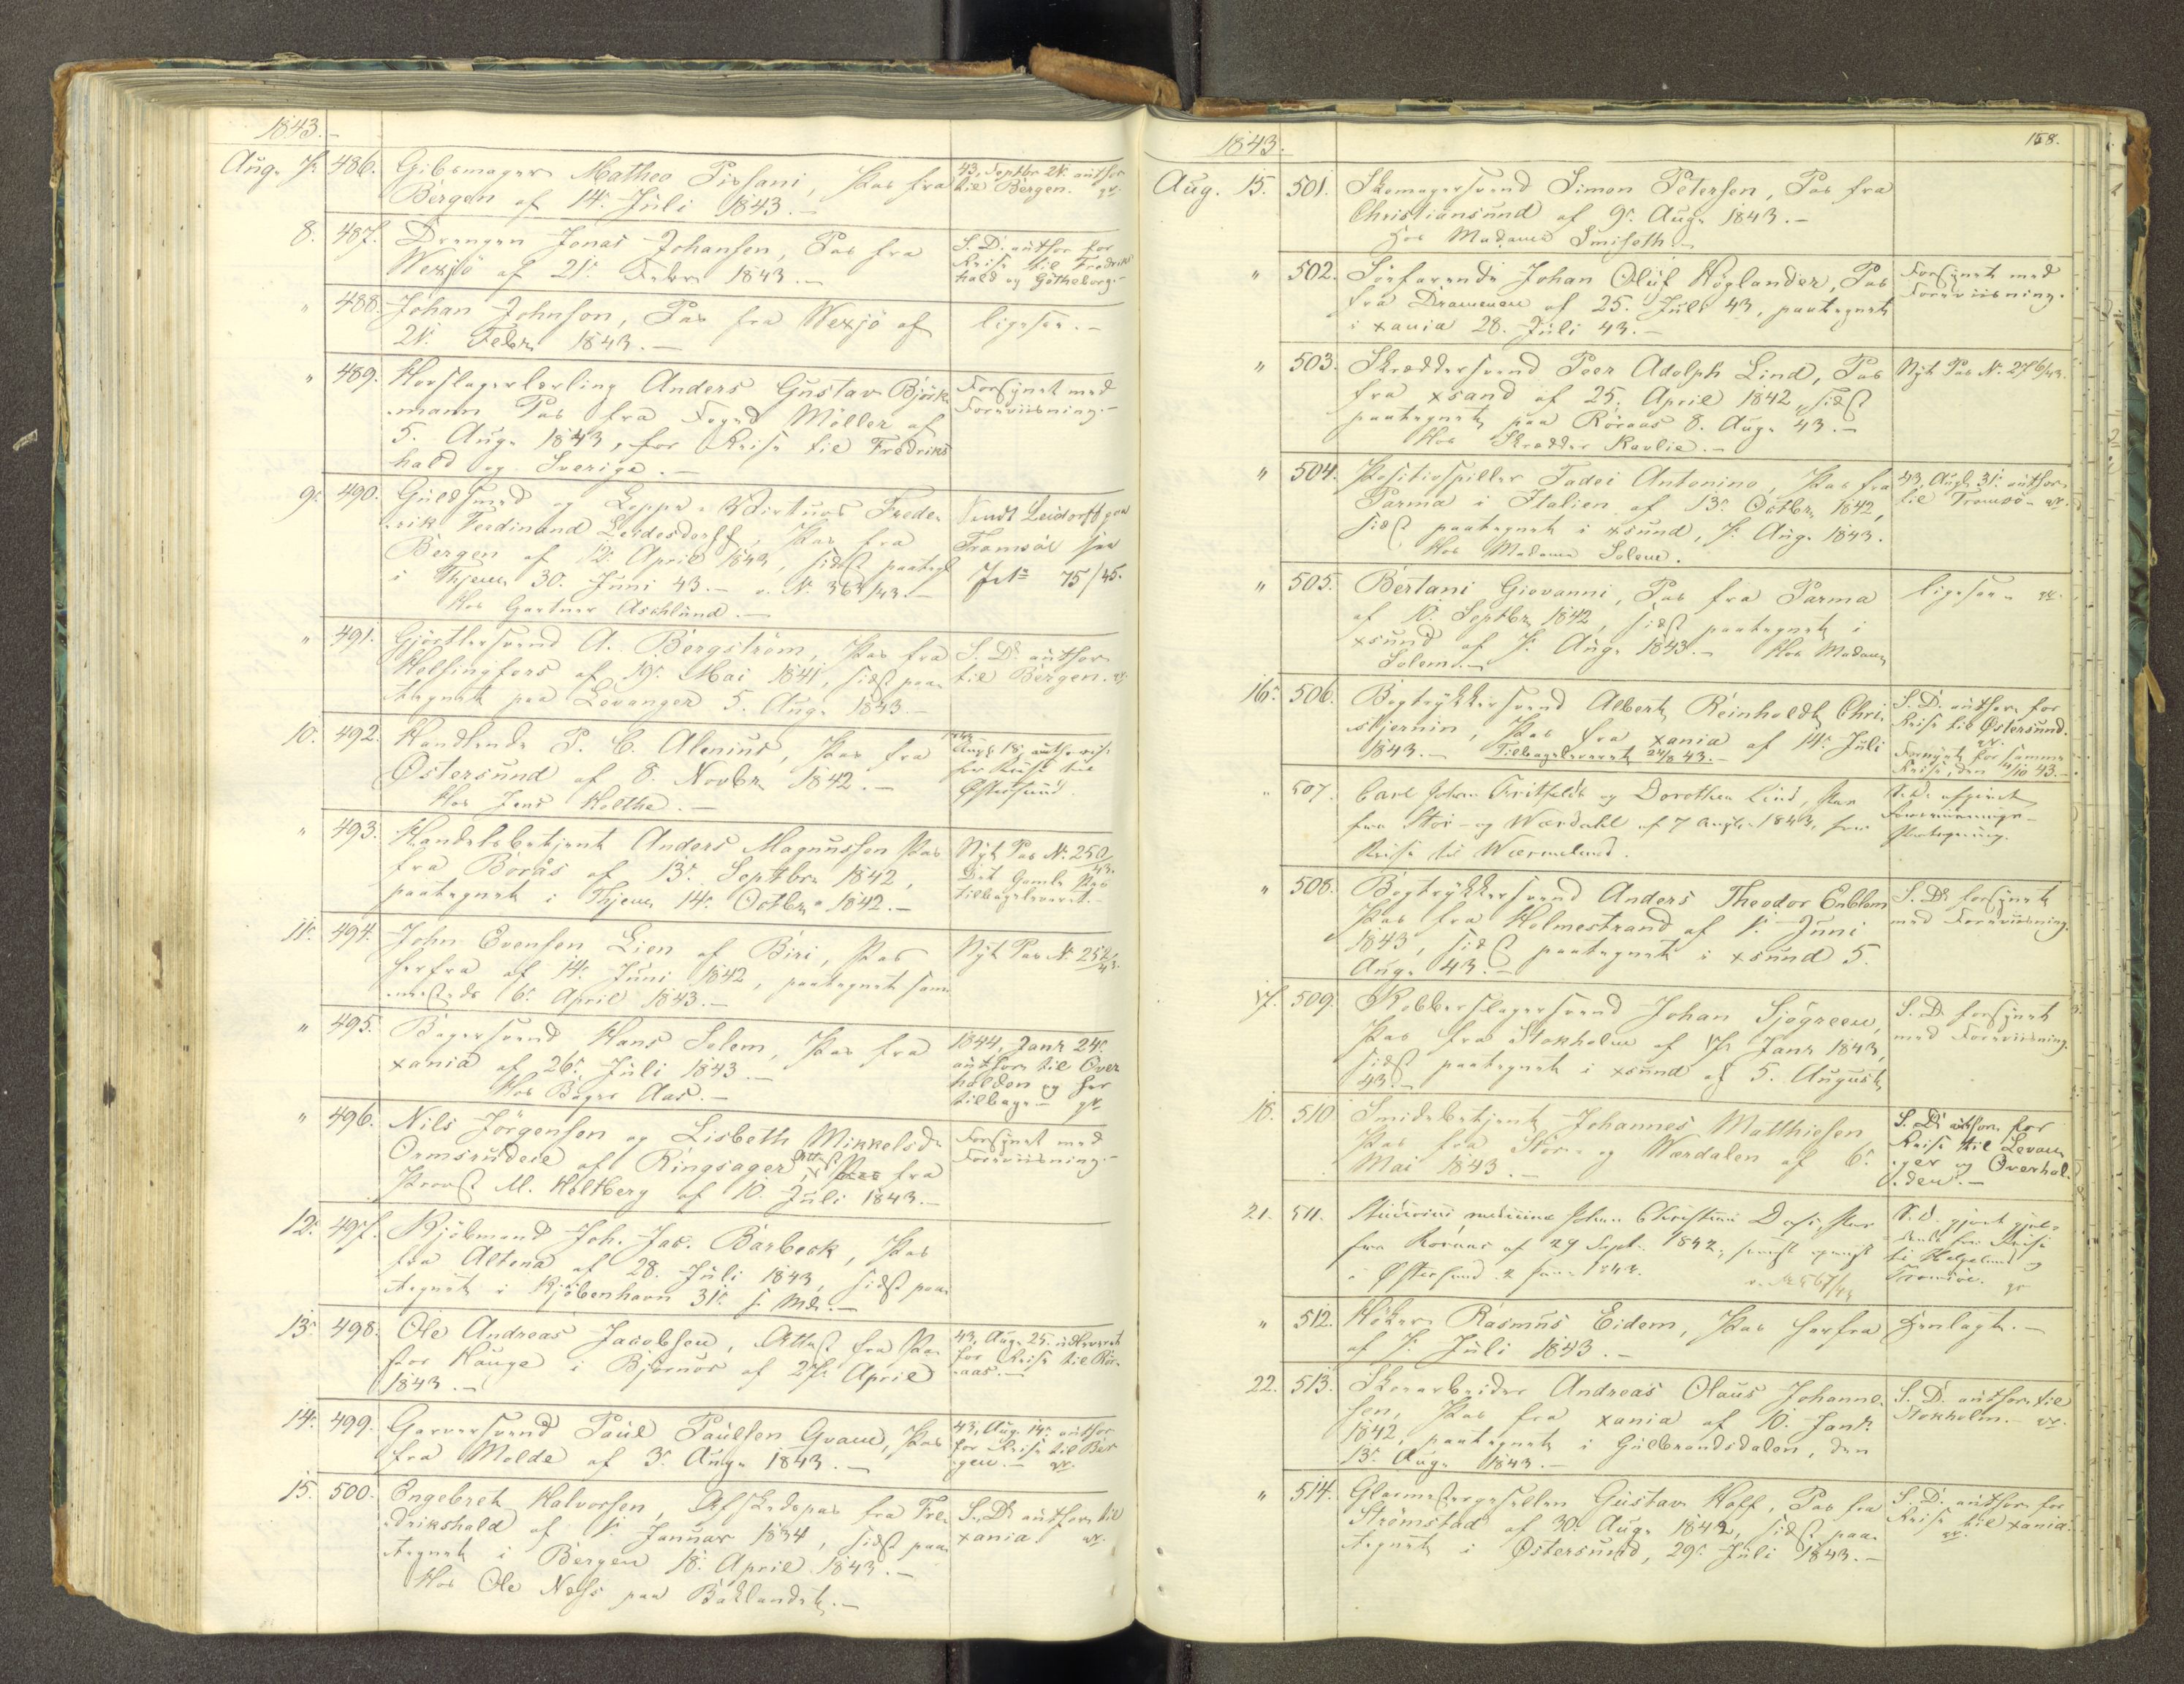 1843.-
Aug. 7. 486. Gibsmager Matheo Pissani, Pas fra
Bergen af 14. Juli 1843.-
43, Septbr 21. author
til Bergen. gr.
8. 487. Drengen Jonas Johansen, Pas fra
Wexjö af 21. Febr. 1843.-
S. D. author for
Reise til Fredriks
hald og Götheborg.-
" 488. Johan Johnson, Pas fra Wexjö af
21. Febr. 1843.-
ligesaa.-
" 489. Anders Gustav Björk
mann Pas fra Foged Möller af
5. Aug. 1843, for Reise til Fredriks
hald og Sverige.-
Forsynet med
Foreviisning.-
9. 490. Guldsmed og Frede-
rik Ferdinand Leidesdorff, Pas fra
Bergen af 12. April 1843, sidst paategn
i Thjem 30. Juni 43.- v. No. 362/43.-
Hos Gartner Aschlund.-
Sendt Leidorff paa
Tromsöe
75/45.
" 491. Gjörtlersvend A. Bergström, Pas fra
Helsingfors af 19. Mai 1841, sidst paa-
tegnet paa Levanger 5. Aug. 1843.-
S. D. author
til Bergen. gr.
10. 492. Handlende P. C. Alenius, Pas fra
Østersund af 8. Novbr. 1842.-
Hos Jens Holthe.-
Augt. 18. authoris.
for Reise til
Østersund.
" 493. Handelsbetjent Anders Magnussen Pas
fra Borås af 13. Septbr. 1842,
paategnet i Thjem 14. Octbr. 1842.-
Nyt Pas No. 250/43.
Det Gamle Pas
tilbageleveret.-
11. 494. John Evensen Lien af Biri, Pas
herfra af 14. Juni 1842, paategnet sam-
mesteds 6. April 1843.-
Nyt Pas No. 252/43.
" 495. Bagersvend Hans Solem, Pas fra
xania af 26. Juli 1843.-
Hos Bager Aas.-
1844, Janr. 24.
author til Over
halden og her
tilbage.- gr.
" 496. Nils Jörgensen og Lisbeth Mikkelsdr.
Ormsrudeie af Ringsager, Attest fra
Provst M. Holtberg af 10. Juli 1843.-
Forsynet med
Foreviisning.-
12. 497. Kjöbmand Joh. Jac. Barbeck, Pas
fra Altona af 28. Juli 1843, sidst paa-
tegnet i Kjöbenhavn 31. s. Md.-
13. 498. Ole Andreas Jacobsen, Attest fra Pa-
stor Hauge i Björnör af 27. April
1843.-
43, Aug. 25. udleveret
for Reise til Rör-
aas.-
14. 499. Garversvend Paul Paulsen Qvam, Pas
fra Molde af 3. Aug. 1843.-
43, Aug. 14. author
for Reise til Ber
gen.- gr.
15. 500. Engebret Halvorsen, Afskedspas fra Fre-
drikshald af 1. Januar 1834, sidst paa-
tegnet i Bergen 18. April 1843.-
Hos Ole Næss paa Baklandet.-
S. D. author. til
xania. gr.
1843. 158.
Aug. 15. 501. Skomagersvend Simon Petersen, Pas fra
Christiansund af 9. Aug. 1843.-
Hos Madame Smiseth.-
" 502. Söefarende Johan Oluf Höglander, Pas
fra Drammen af 25. Juli 43, paategnet
i xania 28. Juli 43.-
Forsynet med
Foreviisning.
" 503. Skræddersvend Peer Adolph Lind, Pas
fra xsand af 25. April 1842, sidst
paategnet paa Röraas 8. Aug. 43.-
Hos Skrædder Ravlie.-
Nyt Pas No. 276/43.
" 504. Positivspiller Tadei Antonino, Pas fra
Parma i Italien af 13. Octbr. 1842,
sidst paategnet i xsund, 7. Aug. 1843.
Hos Madame Solem.
43, Aug. 31. author.
til Tromsö.- gr.
" 505. Bertani Giovanni, Pas fra Parma
af 10. Septbr. 1842, sidst paategnet i
xsund af 7. Aug. 1843.- Hos Madam
Solem.-
ligesaa.- gr.
16. 506. Bogtrykkersvend Albert Reinholdt Chri-
stjernin, Pas fra xania af 14. Juli
1843.- Tilbageleveret 24/8 43.-
S. D. author. for
Reise til Østersund.
gr.
Fornyet for samme
Reise, den 4/10 43.-
" 507. Carl Johan Fritfeldt og Dorothea Lind, Pas
fra Stör- og Wærdahl af 7 Augt. 1843, for
Reise til Wærmeland.
S. D. afgivet
Foreviisnings-
Paategning.
" 508. Bogtrykkersvend Anders Theodor Enblom
Pas fra Holmestrand af 1. Juni
1843, sidst paategnet i xsund 5.
Aug. 43.-
S. D. forsynet
med Foreviisning.
17. 509. Kobberslagersvend Johan Sjögreen,
Pas fra Stokholm af 17. Janr. 1843,
sidst paategnet i xsund af 5. August
43.-
S. D. forsynet
med Foreviisning.
18. 510 Smidebetjent Johannes Matthiesen
Pas fra Stör- og Wærdalen af 6.
Mai 1843.-
S. D. author. for
Reise til Levan-
ger og Overhal-
den.-
21. 511. Studiosus medicine Johan Christian Dass, Pas
fra Roraas af 29 Sept. 1842, senest
i Østersund 2 1843.
v. No. 567/43
S. D. gjort gjel-
dende for Reise
til Helgeland og
Tromsöe. gr
" 512. Höker Rasmus Eidem, Pas herfra
af 7. Juli 1843.-
Henlagt.-
22. 513. Skoearbeider Andreas Olaus Johanne-
sen, Pas fra xania af 10. Janr.
1842, paategnet i Gulbrandsdalen, den
13. Aug. 1843.-
S. D. author. til
Stokholm.- gr.
" 514. Glarmestergesellen Gustav Hoff, Pas fra
Strömstad af 30. Aug. 1842, sidst paa-
tegnet i Østersund, 29. Juli 1843.-
S. D. author. for
Reise til xania.
gr.